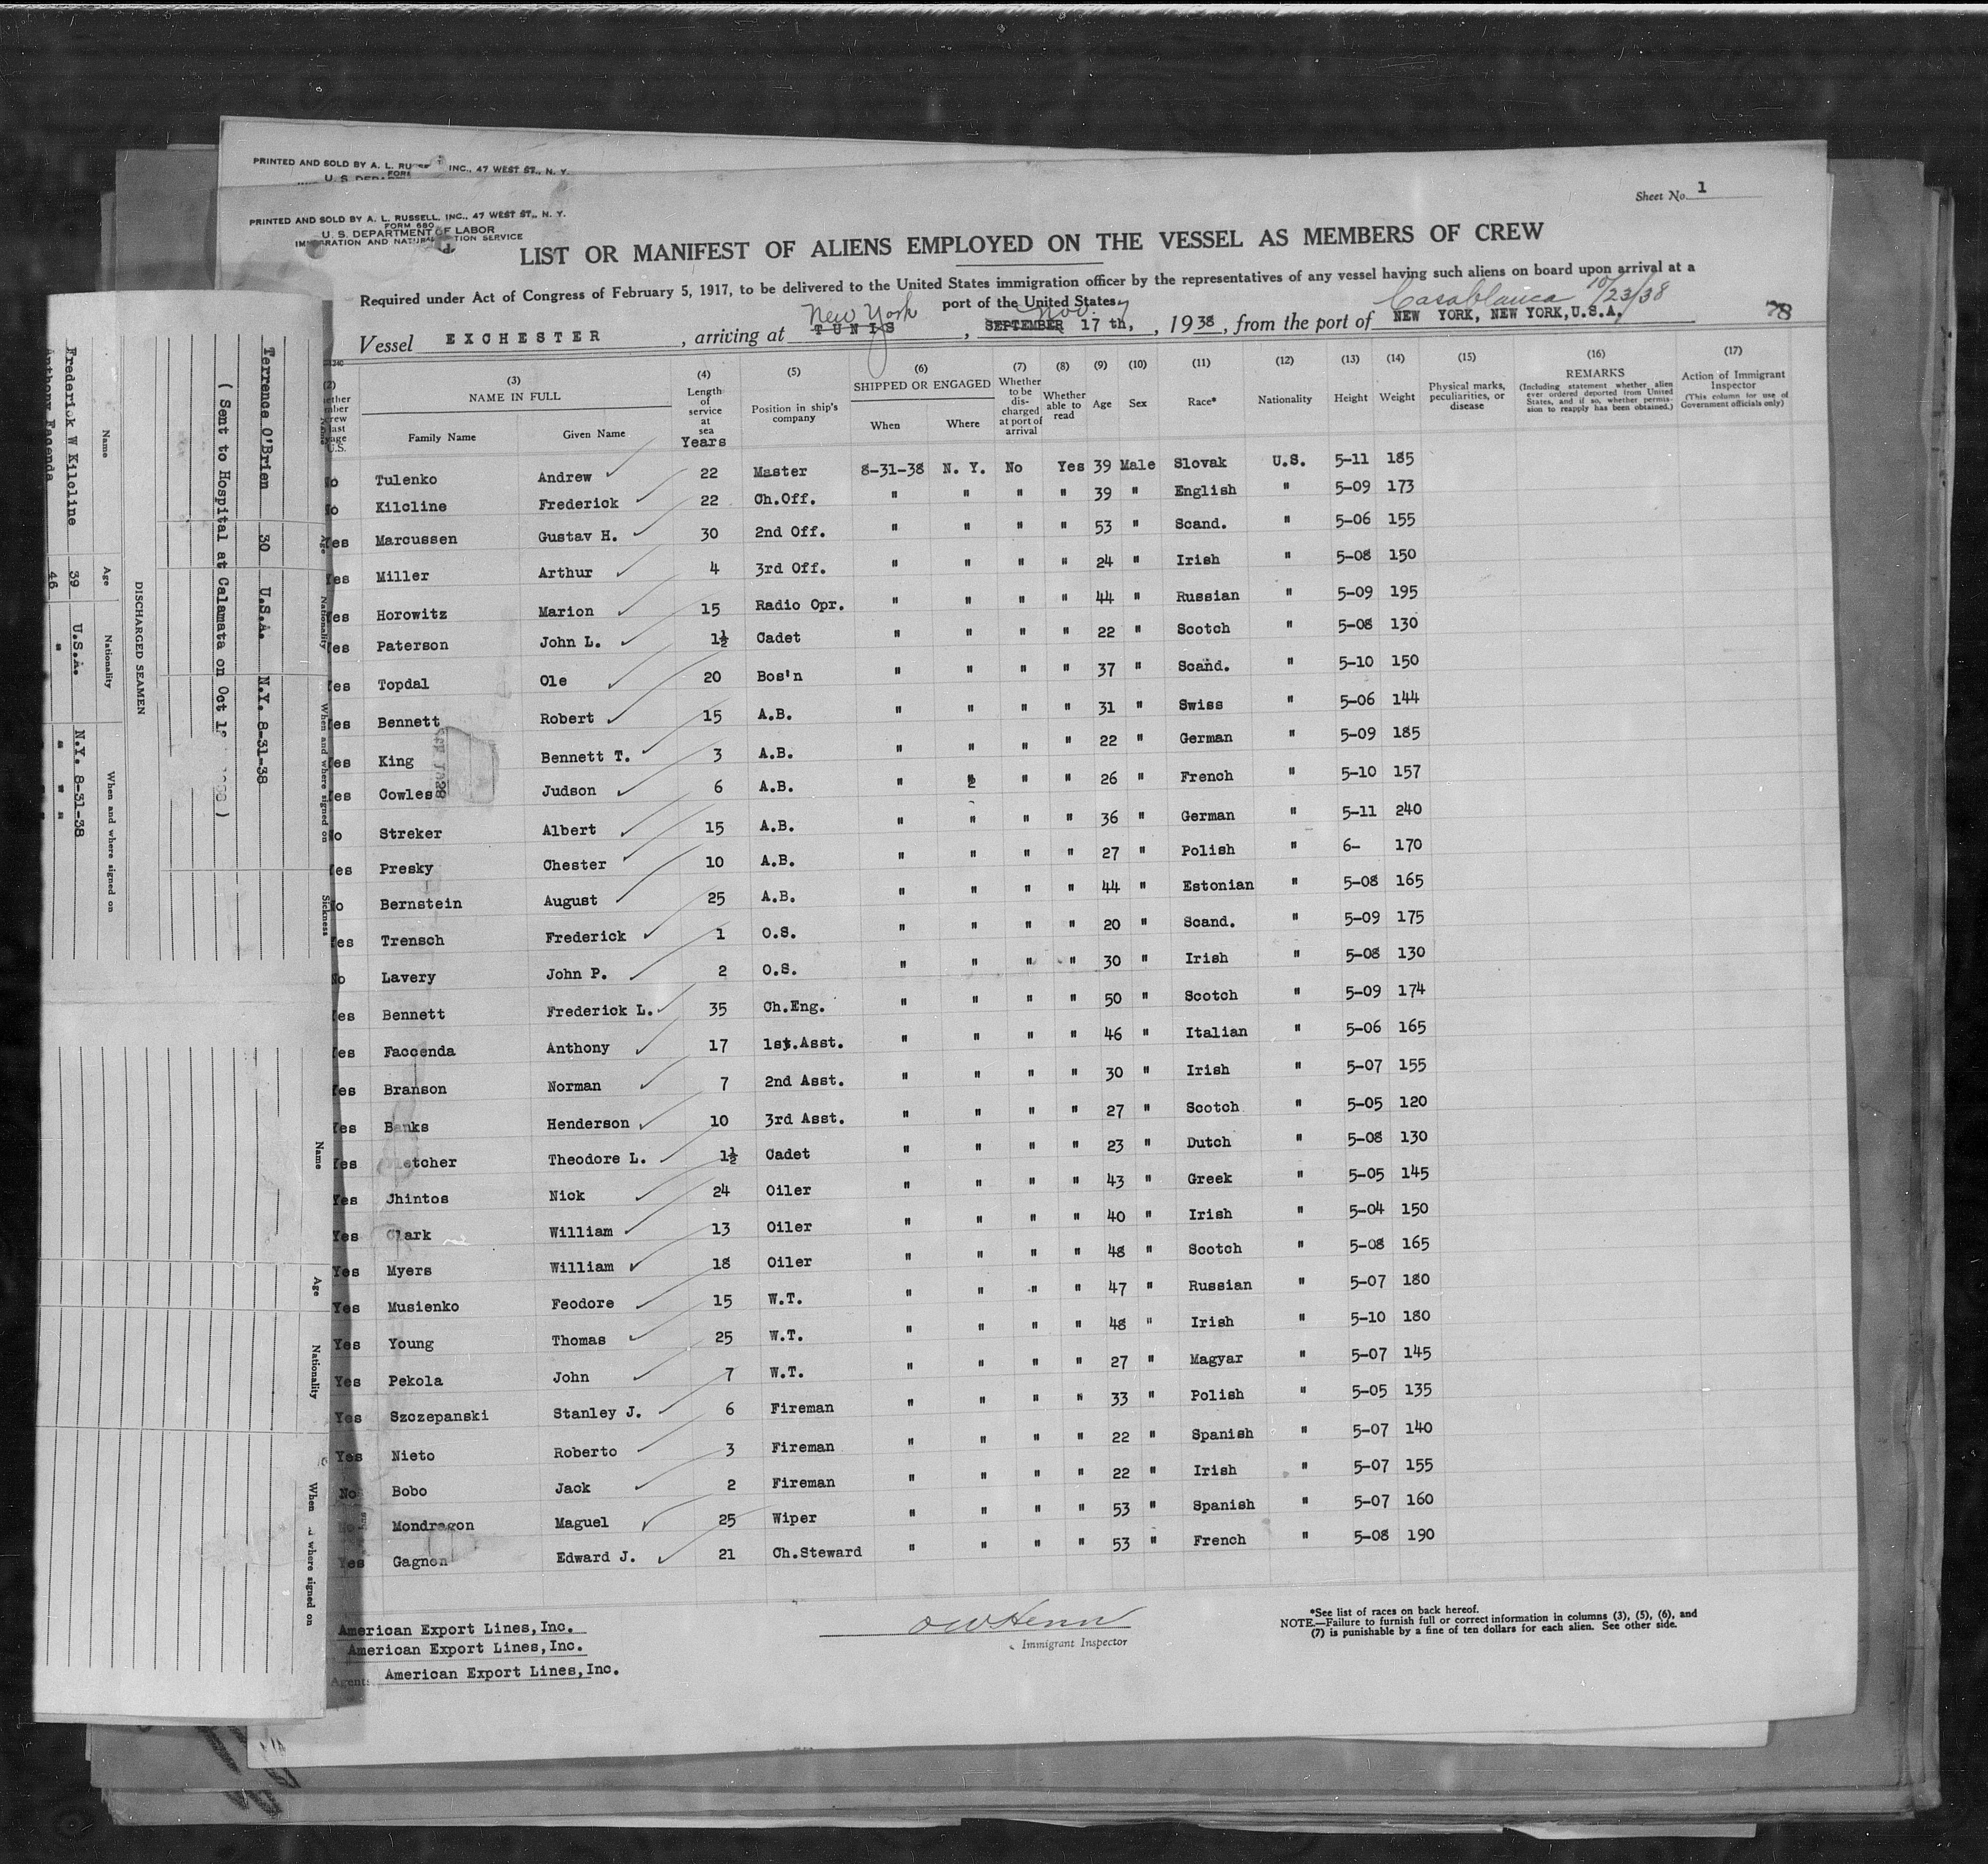 PRINTED AND SOLD BY A. L. INC., 47 WEST ST., N. Y.
PRINTED AND SOLD BY A. L. RUSSELL, INC., 47 WEST ST., N. Y.
FORM 680
U. S. DEPARTMENT OF LABOR
IMMIGRATION AND NATURALIZATION SERVICE
Sheet No. 1
LIST OR MANIFEST OF ALIENS EMPLOYED ON THE VESSEL AS MEMBERS OF CREW
Required under Act of Congress of February 5, 1917, to be delivered to the United States immigration officer by the representatives of any vessel having such aliens on board upon arrival at a
port of the United States
New York Nov. Casablanca 10/23/38
Vessel EXCHESTER, arriving at TUNIS, SEPTEMBER 17 th, 1938, from the port of NEW YORK, NEW YORK, U.S.A. 78
(2) (3) NAME IN FULL Family Name Given Name (4) Length of service at sea Years (5) Position in ship's company (6) SHIPPED OR ENGAGED When Where (7) Whether to be discharged at port of arrival (8) Whether able to read (9) Age (10) Sex (11) Race* (12) Nationality (13) Height (14) Weight (15) Physical marks, peculiarities, or disease (16) REMARKS (Including statement whether alien ever ordered deported from United States, and if so, whether permission to reapply has been obtained.) (17) Action of Immigrant Inspector (This column for use of Government officials only)
No Tulenko Andrew 22 Master 8-31-38 N. Y. No Yes 39 Male Slovak U.S. 5-11 185
No Kilcline Frederick 22 Ch.Off. " " " " 39 " English " 5-09 173
Yes Marcussen Gustav H. 30 2nd Off. " " " " 53 " Scand. " 5-06 155
Yes Miller Arthur 4 3rd Off. " " " " 24 " Irish " 5-08 150
Yes Horowitz Marion 15 Radio Opr. " " " " 44 " Russian " 5-09 195
Yes Paterson John L. 1½ Cadet " " " " 22 " Scotch " 5-08 130
Yes Topdal Ole 20 Bos'n " " " " 37 " Scand. " 5-10 150
Yes Bennett Robert 15 A.B. " " " " 31 " Swiss " 5-06 144
Yes King Bennett T. 3 A.B. " " " " 22 " German " 5-09 185
Yes Cowles Judson 6 A.B. " " " " 26 " French " 5-10 157
No Streker Albert 15 A.B. " " " " 36 " German " 5-11 240
Yes Presky Chester 10 A.B. " " " " 27 " Polish " 6- 170
No Bernstein August 25 A.B. " " " " 44 " Estonian " 5-08 165
Yes Trensch Frederick 1 O.S. " " " " 20 " Scand. " 5-09 175
No Lavery John P. 2 O.S. " " " " 30 " Irish " 5-08 130
Yes Bennett Frederick L. 35 Ch.Eng. " " " " 50 " Scotch " 5-09 174
Yes Faccenda Anthony 17 1st.Asst. " " " " 46 " Italian " 5-06 165
Yes Branson Norman 7 2nd Asst. " " " " 30 " Irish " 5-07 155
Yes Banks Henderson 10 3rd Asst. " " " " 27 " Scotch " 5-05 120
Yes Fletcher Theodore L. 1½ Cadet " " " " 23 " Dutch " 5-08 130
Yes Jhintos Nick 24 Oiler " " " " 43 " Greek " 5-05 145
Yes Clark William 13 Oiler " " " " 40 " Irish " 5-04 150
Yes Myers William 18 Oiler " " " " 48 " Scotch " 5-08 165
Yes Musienko Feodore 15 W.T. " " " " 47 " Russian " 5-07 180
Yes Young Thomas 25 W.T. " " " " 48 " Irish " 5-10 180
Yes Pekola John 7 W.T. " " " " 27 " Magyar " 5-07 145
Yes Szczepanski Stanley J. 6 Fireman " " " " 33 " Polish " 5-05 135
Yes Nieto Roberto 3 Fireman " " " " 22 " Spanish " 5-07 140
No Bobo Jack 2 Fireman " " " " 22 " Irish " 5-07 155
No Mondragon Maguel 25 Wiper " " " " 53 " Spanish " 5-07 160
Yes Gagnon Edward J. 21 Ch.Steward " " " " 53 " French " 5-08 190
American Export Lines, Inc.
American Export Lines, Inc.
Agents American Export Lines, Inc.
O W Henn
Immigrant Inspector
*See list of races on back hereof.
NOTE.—Failure to furnish full or correct information in columns (3), (5), (6), and
(7) is punishable by a fine of ten dollars for each alien. See other side.
Name Age Nationality When and where signed on Sickness
Terrence O'Brien 30 U.S.A. N.Y. 8-31-38
( Sent to Hospital at Calamata on Oct
DISCHARGED SEAMEN
Name Age Nationality When and where signed on
Frederick W Kilcline 39 U.S.A. N.Y. 8-31-38
Anthony Facenda 46 " " " "
Name Age Nationality When where signed on